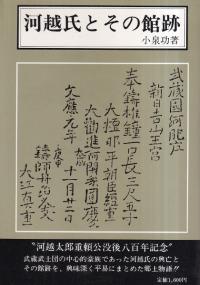 河越氏とその館跡
小泉功著
武蔵國河肥庄
新日吉山王宮
奉鋳椎鐘一口長三尺五寸
大檀那平朝臣経重
大勧進阿闍梨圓慶
文應元年
十一月廿二日
鋳師丹治久友
大江真重
"河越太郎重頼公没後八百年記念"
武蔵武士団の中心的豪族であった河越氏の興亡と
その館跡を、興味深く平易にまとめた郷土物語!!
定価1,600円